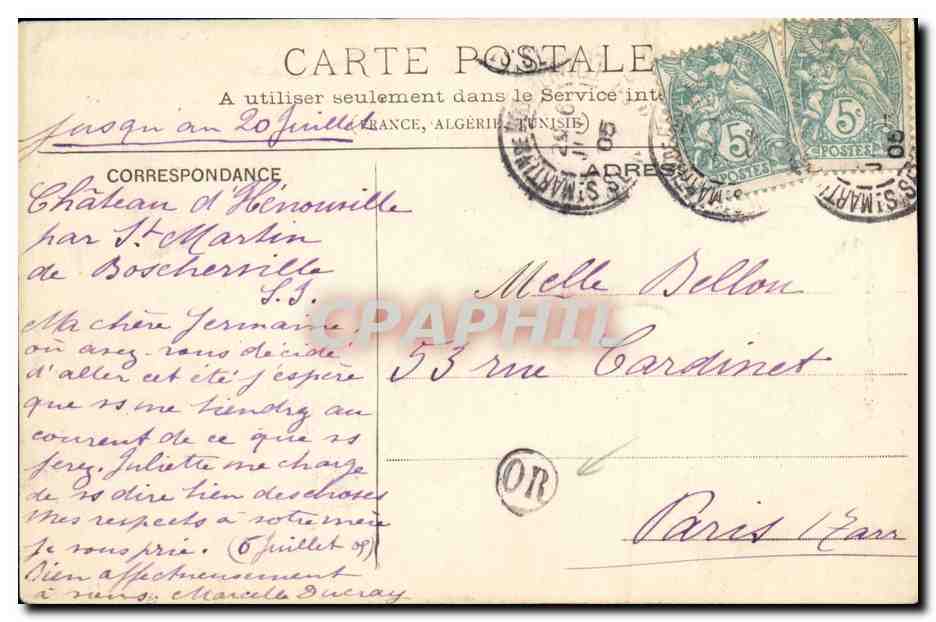 CARTE POSTALE
A utiliser seulement dans le Service inte
(FRANCE, ALGÉRIE, TUNISIE)
jusqu'au 20 Juillet
CORRESPONDANCE
ADRESSE
Château d'Hénouville
par St Martin
de Boscherville
S. I.
Ma chère Germaine,
où avez-vous décidé
d'aller cet été j'espère
que vs me tiendrez au
courent de ce que vs
ferez. Juliette me charge
de vs dire bien des choses
Mes respects à votre mère
je vous prie. (6 Juillet 05)
Bien affectueusement
à vous. Marcelle Ducray
Melle Bellon
53 rue Cardinet
Paris
OR
5c
POSTES
5c
POSTES
ST MARTIN DE
05
ST MARTI
05
CPAPHIL